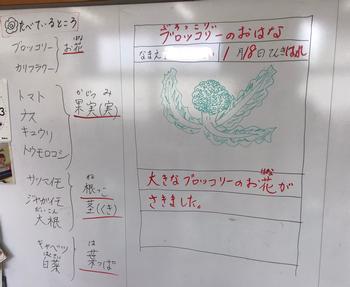 たべているところ
ブロッコリー お花
はな
カリフラワー
トマト
ナス
キュウリ
トウモロコシ
かじつ み
果実(実)
サツマイモ
ジャガイモ
だいこん
大根
ね
根っこ
茎(くき)
キャベツ
はくさい
白菜
は
葉っぱ
ぶろっこりい
ブロッコリーのおはな
なまえ
1月18日てんきはれ
大きなブロッコリーのお花が
はな
さきました。
3